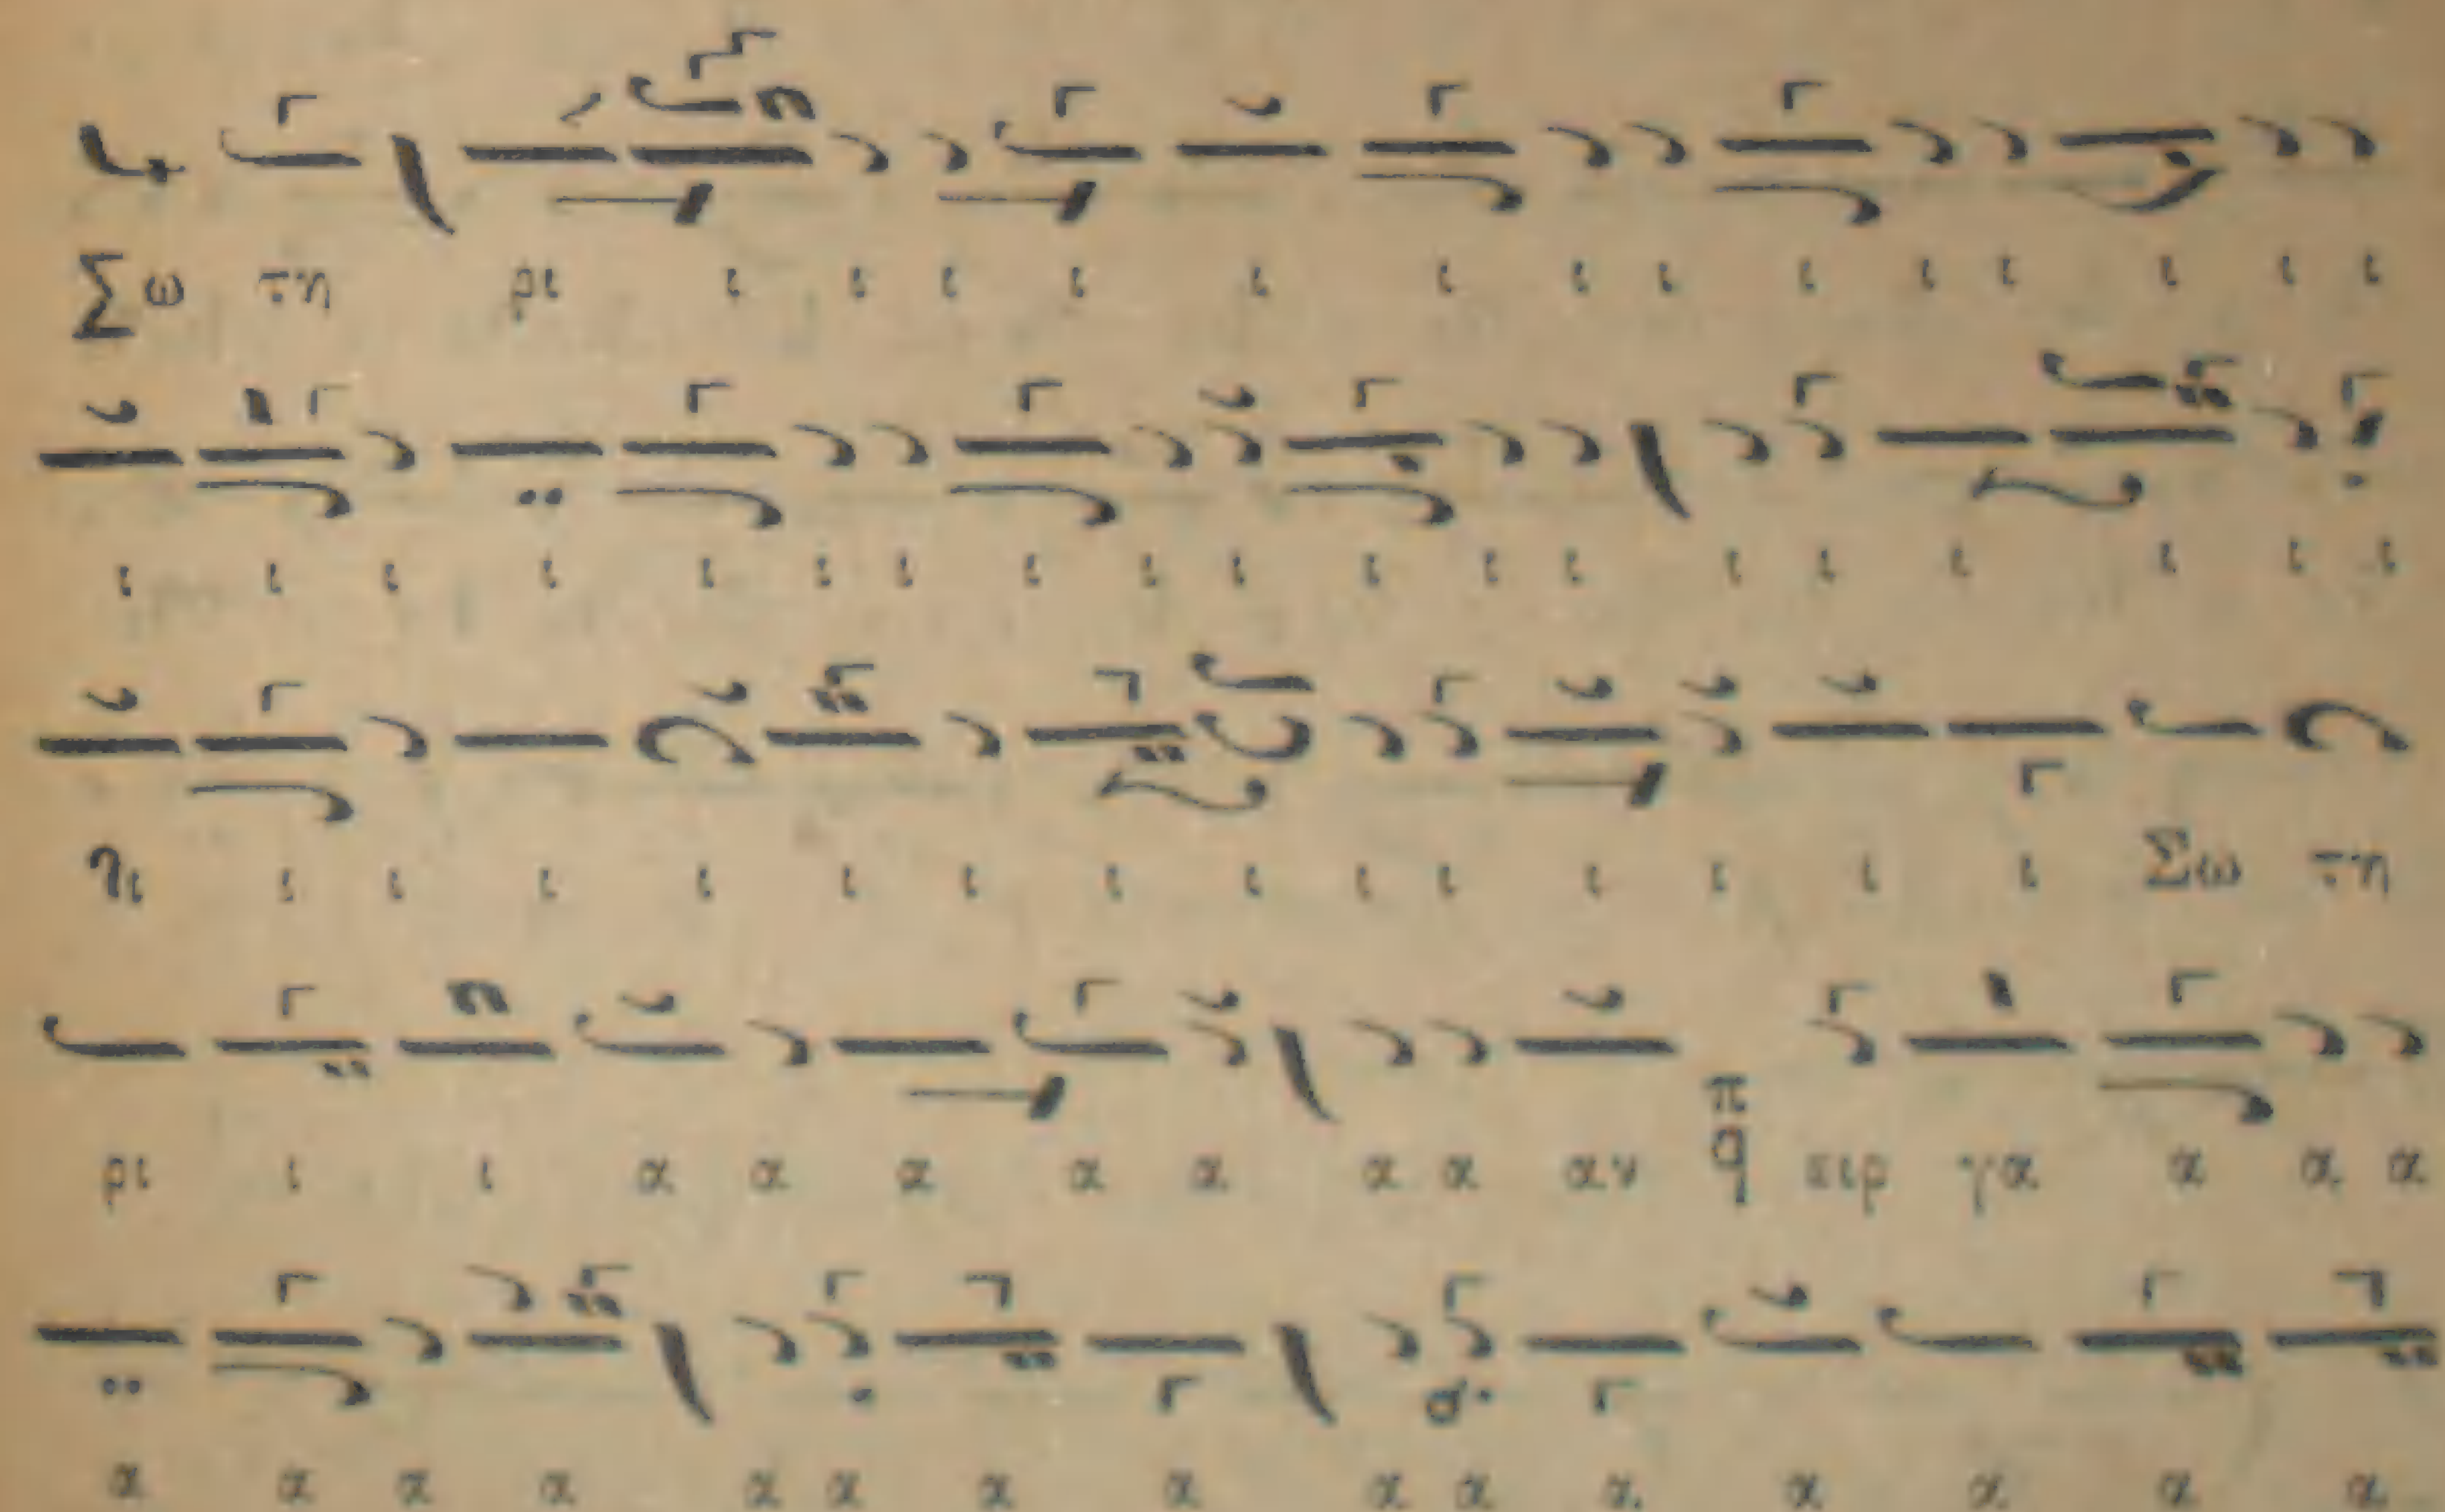 Σω τη ρι ι ι ι ι ι ι ι ι ι ι ι ι ι ι
ι ι ι ι ι ι ι ι ι ι ι ι ι ι ι ι ι ι ι
ι ι ι ι ι ι ι ι ι ι ι ι ι ι Σω τη
ρι ι ι α α α α α α α αν π ϥ ειρ γα α α α
α α α α α α α α α α α α α α α